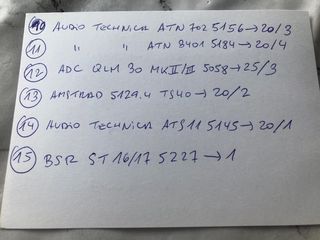 10 AUDIO TECHNICA ATN 702 5156→20/3
11 " " ATN 3401 5184→20/4
12 ADC QLM 30 MKII/III 5058→25/3
13 AMSTRAD 5129.4 TS40→20/2
14 AUDIO TECHNICA ATS11 5145→20/1
15 BSR ST 16/17 5227→1